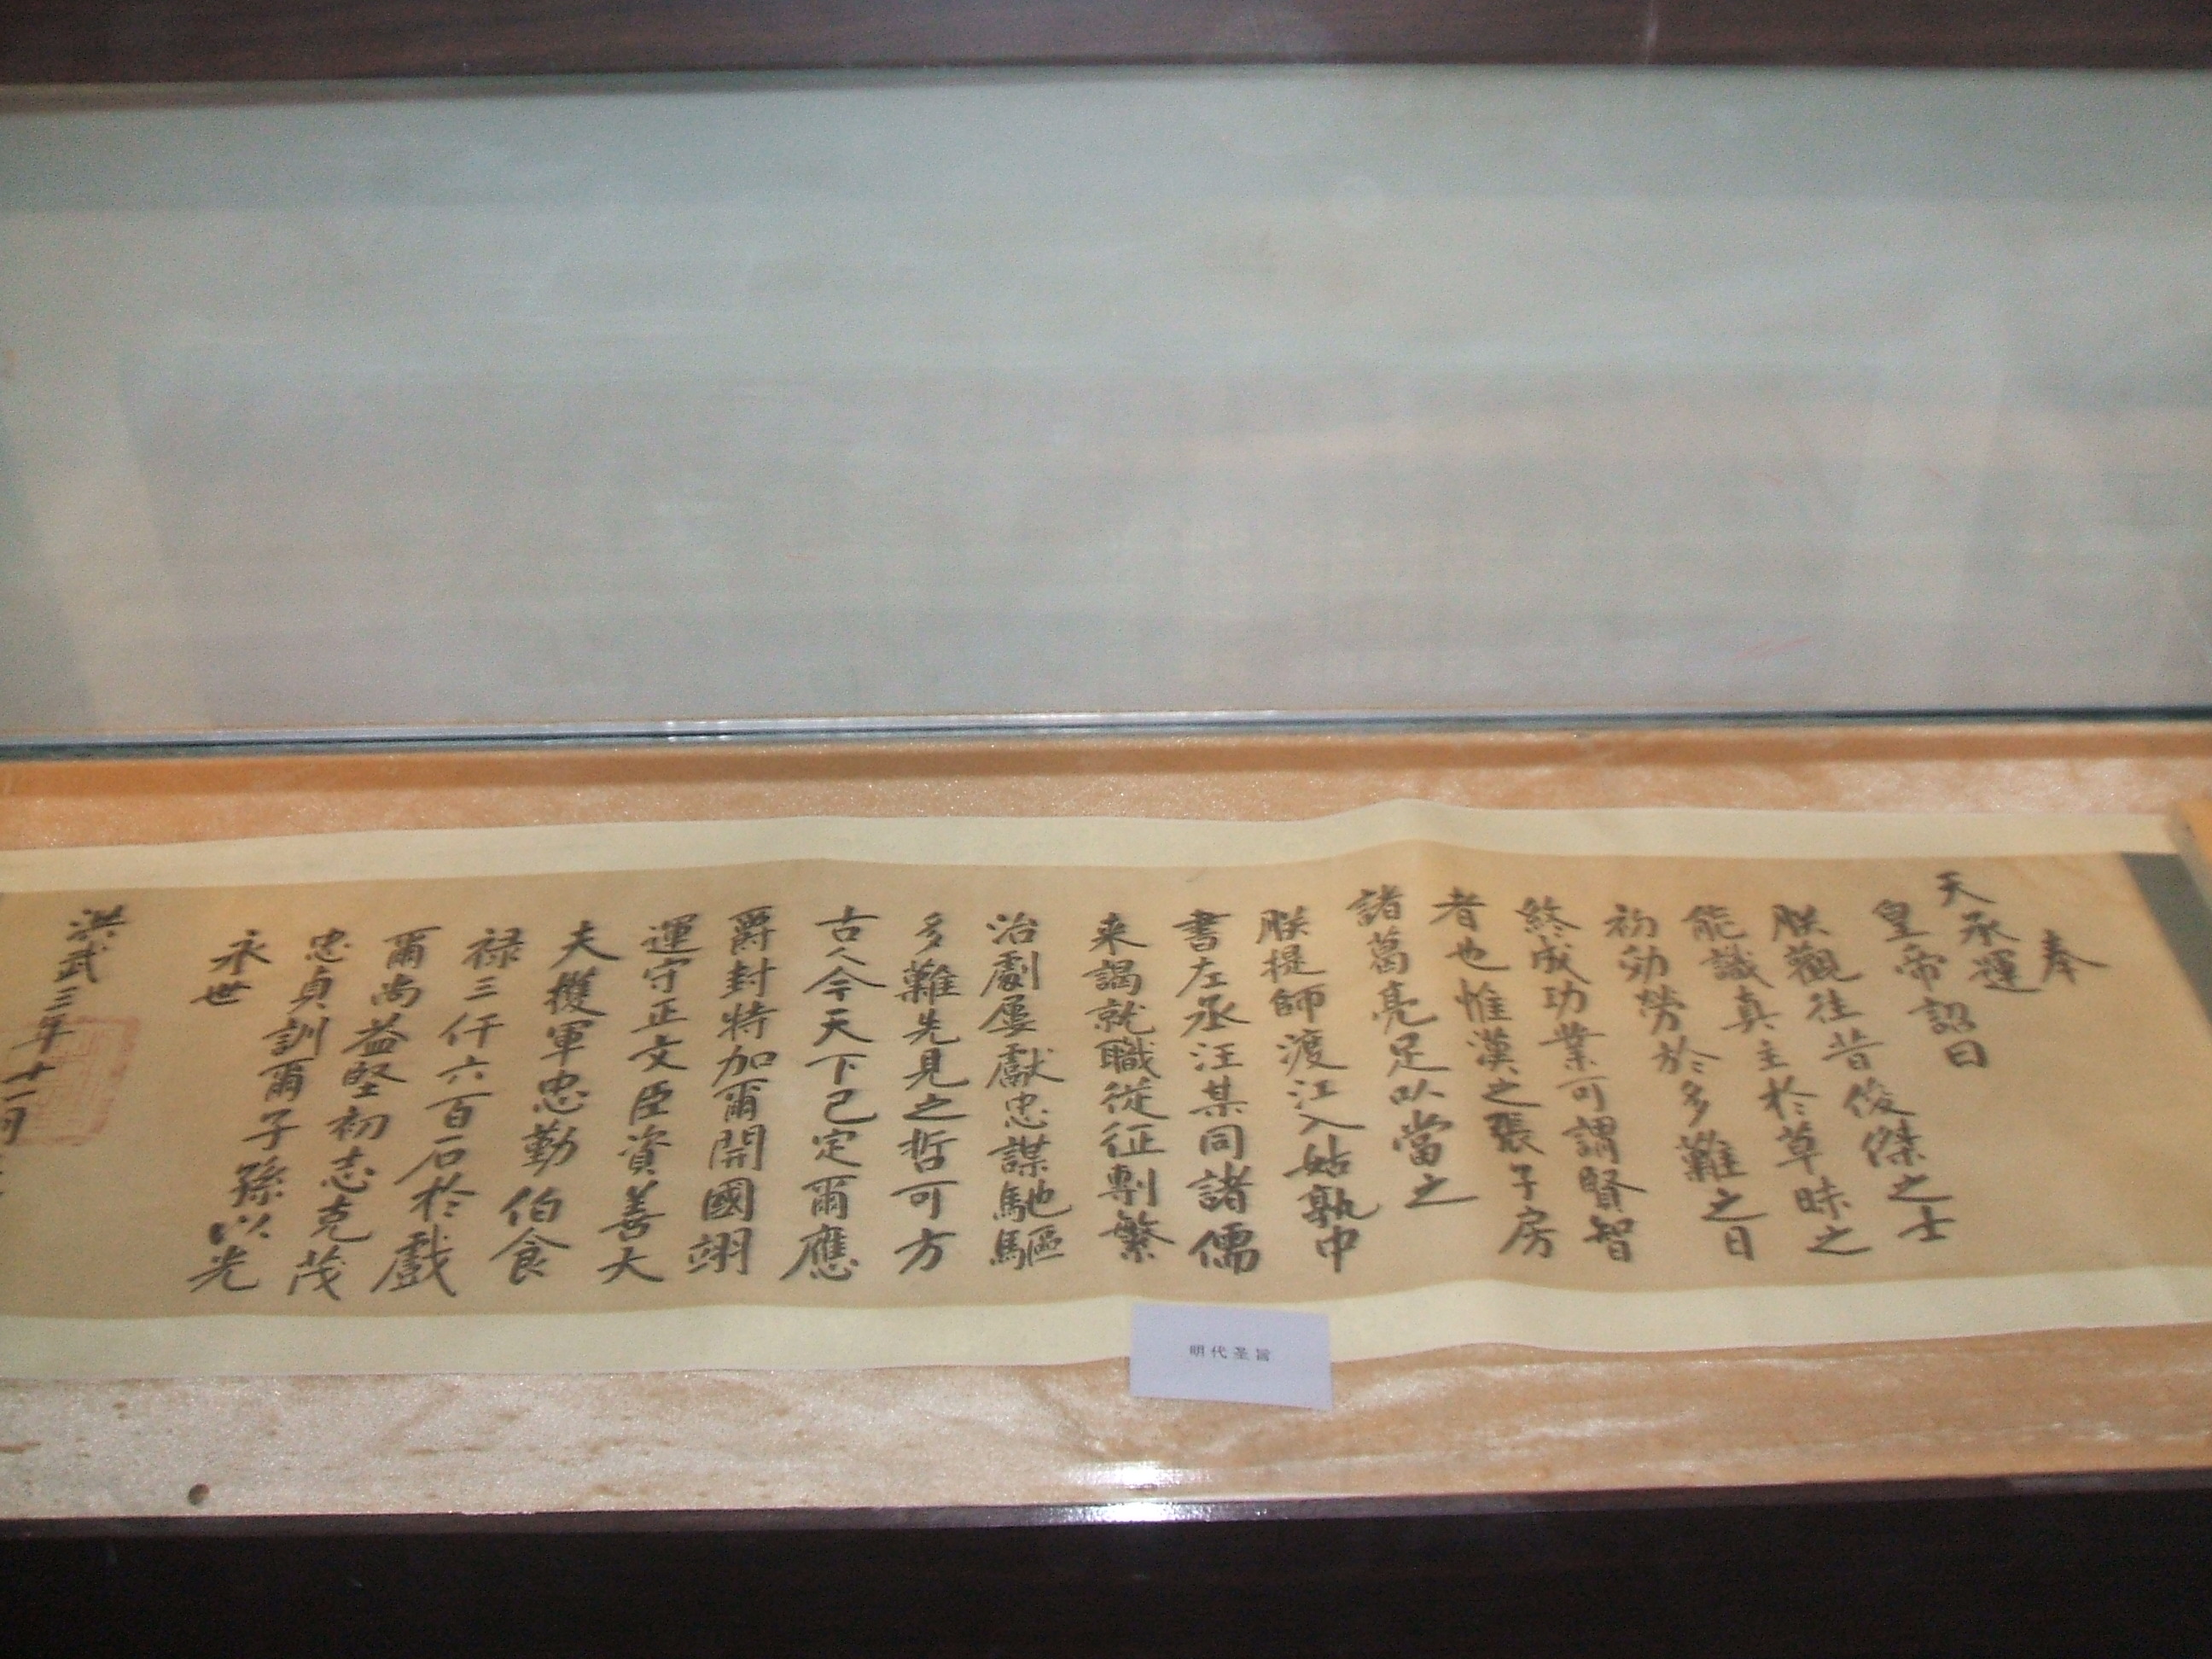 奉
天承運
皇帝詔曰
朕觀往昔俊傑之士
能識真主於草昧之
初効勞於多難之日
終成功業可謂賢智
者也惟漢之張子房
諸葛亮足以當之
朕提師渡江入姑孰中
書左丞汪某同諸儒
来謁就職從征剸繁
治劇屡獻忠謀馳驅
多難先見之哲可方
古人今天下已定爾應
爵封特加爾開國翊
運守正文臣資善大
夫護軍忠勤伯食
禄三仟六百石於戲
爾尚益堅初志克茂
忠貞訓爾子孫以光
永世
洪武三年十一月
明代圣旨